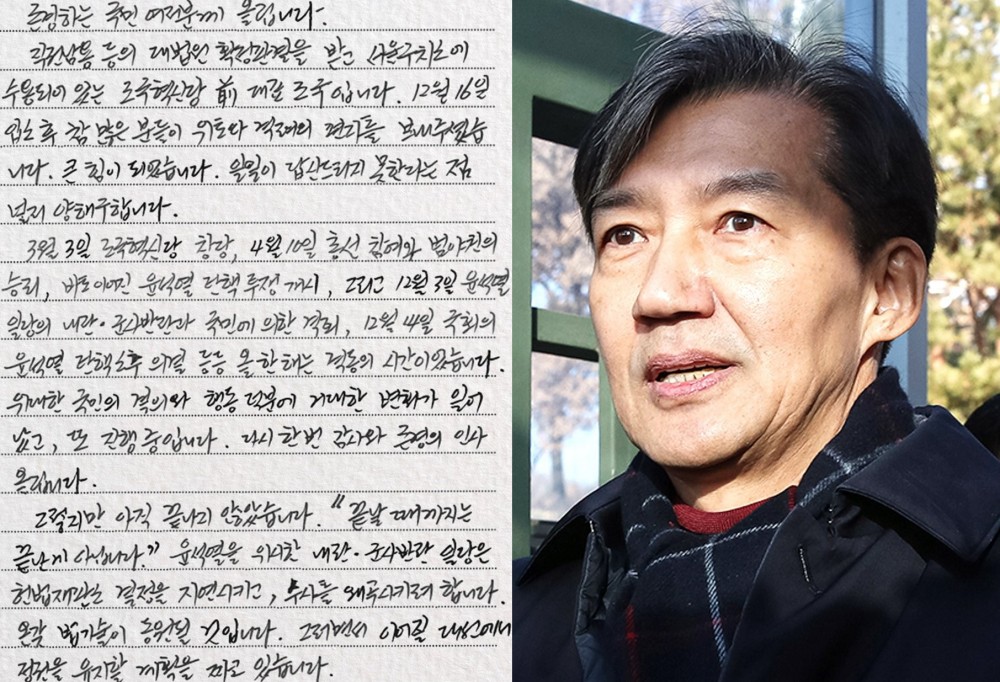 존경하는 국민 여러분께 올립니다.
직권남용 등의 대법원 확정판결을 받고 서울구치소에
수용되어 있는 조국혁신당 前 대표 조국입니다. 12월 16일
입소 후 참 많은 분들이 위로와 격려의 편지를 보내주셨습
니다. 큰 힘이 되었습니다. 일일이 답신드리지 못한다는 점
널리 양해구합니다.
3월 3일 조국혁신당 창당, 4월 10일 총선 참여와 범야권의
승리, 바로 이어진 윤석열 탄핵 투쟁 개시, 그리고 12월 3일 윤석열
일당의 내란·군사반란과 국민에 의한 격퇴, 12월 14일 국회의
윤석열 탄핵소추 의결 등등 올 한 해는 격동의 시간이었습니다.
위대한 국민의 결의와 행동 덕분에 거대한 변화가 일어
났고, 또 진행 중입니다. 다시 한번 감사와 존경의 인사
올립니다.
그렇지만 아직 끝나지 않았습니다. "끝날 때까지는
끝난 게 아닙니다." 윤석열을 위시한 내란·군사반란 일당은
헌법재판소 결정을 지연시키고, 수사를 왜곡시키려 합니다.
온갖 법기술이 동원될 것입니다. 그러면서 이어질 대선에서
정권을 유지할 계획을 짜고 있습니다.